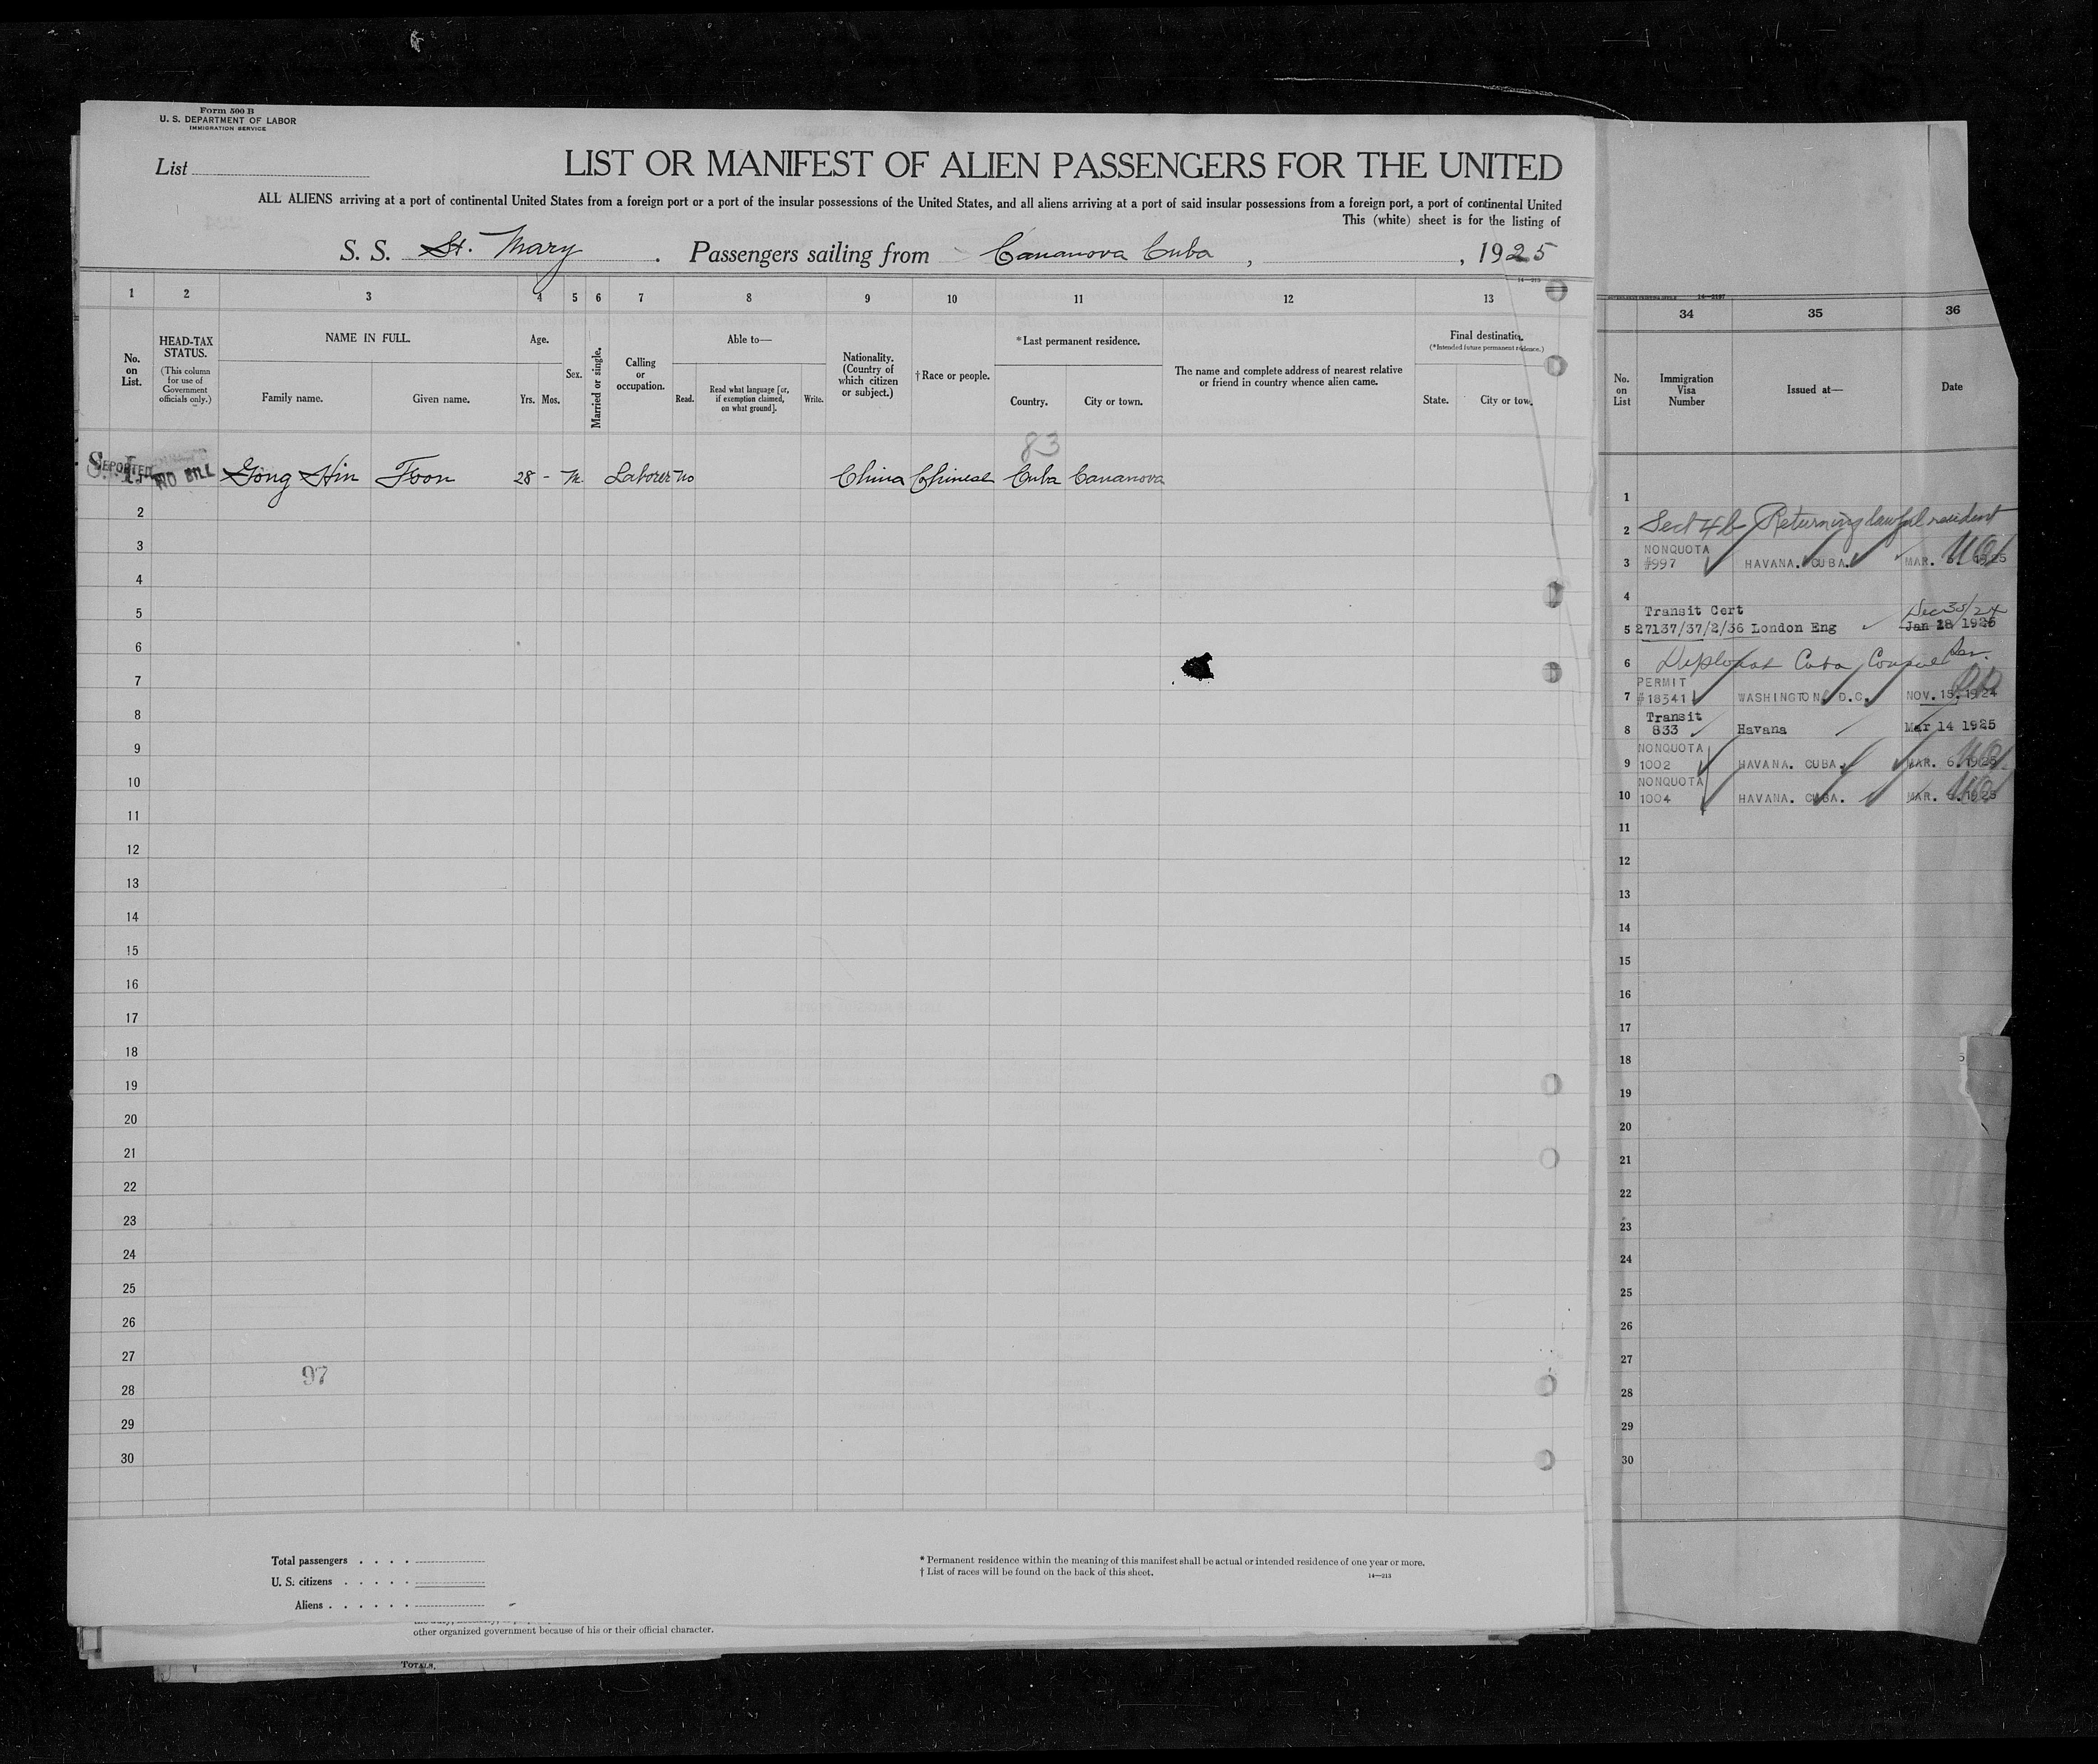 Form 500 B
U. S. DEPARTMENT OF LABOR
IMMIGRATION SERVICE
List
LIST OR MANIFEST OF ALIEN PASSENGERS FOR THE UNITED
ALL ALIENS arriving at a port of continental United States from a foreign port or a port of the insular possessions of the United States, and all aliens arriving at a port of said insular possessions from a foreign port, a port of continental United
This (white) sheet is for the listing of
S. S. St. Mary. Passengers sailing from Cananova Cuba, , 1925
14—213
1 2 3 4 5 6 7 8 9 10 11 12 13
No. on List.
HEAD-TAX STATUS.
(This column for use of Government officials only.)
NAME IN FULL.
Family name. Given name.
Age.
Yrs. Mos.
Sex.
Married or single.
Calling or occupation.
Able to—
Read. Read what language [or, if exemption claimed, on what ground]. Write.
Nationality. (Country of which citizen or subject.)
†Race or people.
*Last permanent residence.
Country. City or town.
The name and complete address of nearest relative or friend in country whence alien came.
Final destination.
(*Intended future permanent residence.)
State. City or tow.
83
NO BILL Gong Hin Foon 28 - M. Laborer no China Chinese Cuba Cananova
2
3
4
5
6
7
8
9
10
11
12
13
14
15
16
17
18
19
20
21
22
23
24
25
26
27
97
28
29
30
Total passengers . . . .
U. S. citizens . . . . .
Aliens . . . . . .
* Permanent residence within the meaning of this manifest shall be actual or intended residence of one year or more.
† List of races will be found on the back of this sheet.
14—213
other organized government because of his or their official character.
TOTALS.
14—2197
34 35 36
No. on List
Immigration Visa Number
Issued at—
Date
1
2 Sect 4b Returning lawful resident
NONQUOTA
3 #997 HAVANA. CUBA. MAR. 1925
4
Transit Cert Dec 30/24
5 27137/37/2/36 London Eng Jan 28 1925
6 Diplomat Cuba Consul
PERMIT
7 #18341 WASHINGTON. D.C. NOV. 15. 1924
Transit
8 833 Havana Mar 14 1925
NONQUOTA
9 1002 HAVANA. CUBA. MAR. 6. 1925
NONQUOTA
10 1004 HAVANA. CUBA. MAR. 6. 1925
11
12
13
14
15
16
17
18
19
20
21
22
23
24
25
26
27
28
29
30